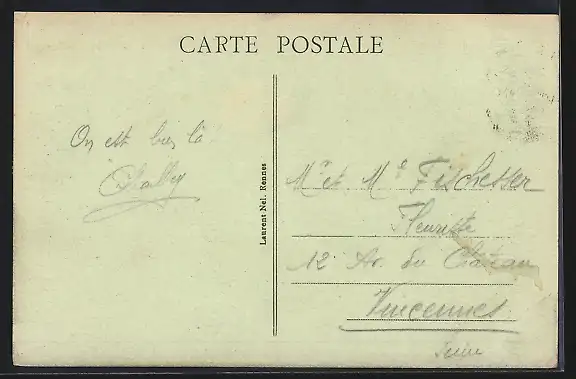 CARTE POSTALE
On est bien là
Laurent Nel. Rennes
Mr et Me Fischesser
Fleuriste
12 Av. du Château
Vincennes
Seine